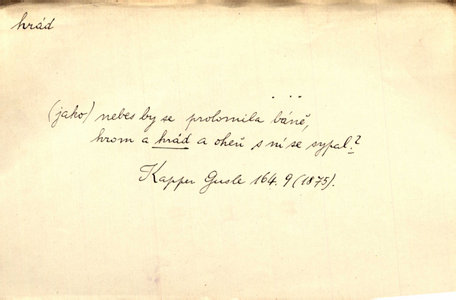 hrád
...
(jako) nebes by se prolomila báně,
hrom a hrád a oheň s ní se sypal?
Kapper Gusle 164. 9 (1875).